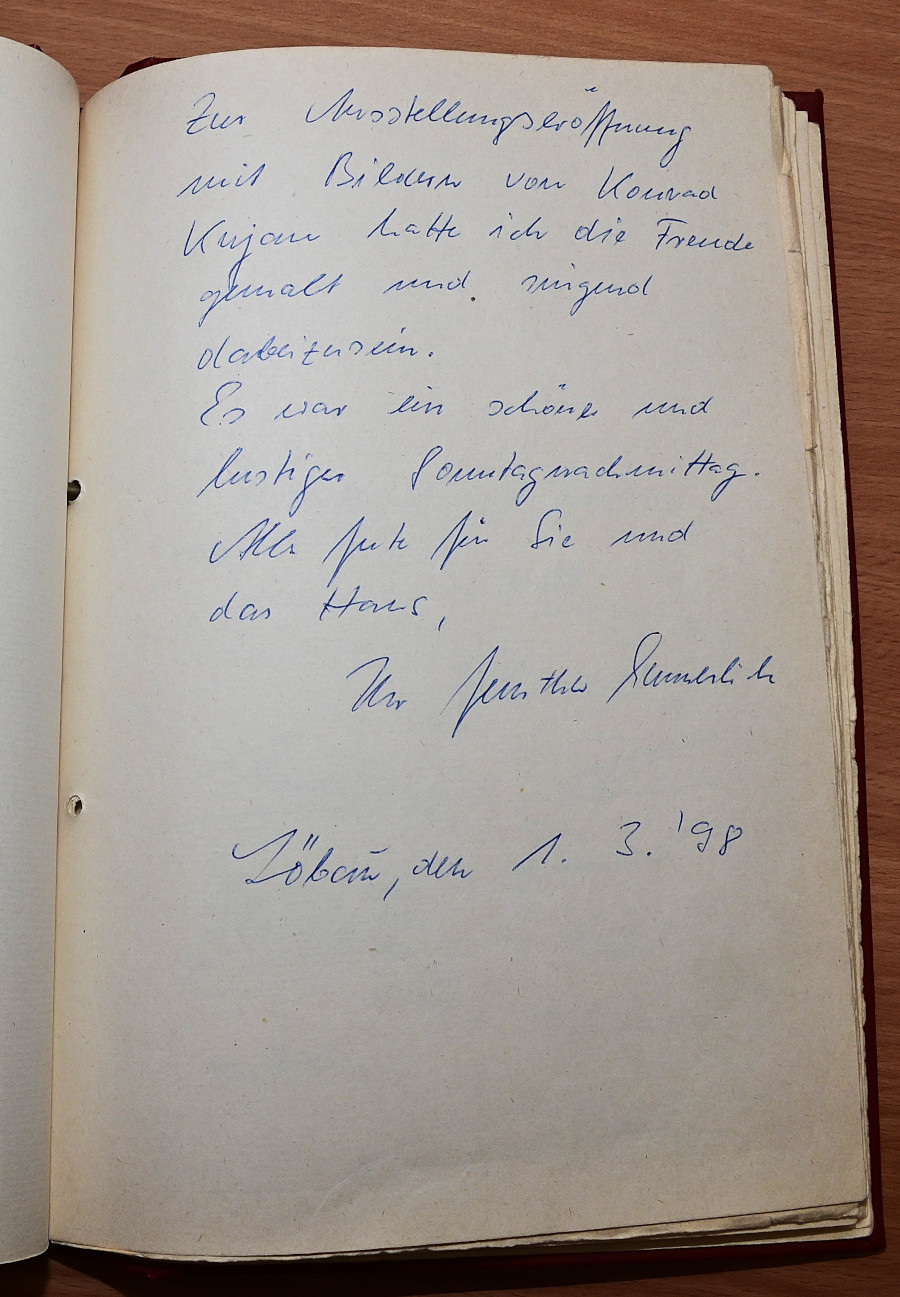 Zur Ausstellungseröffnung
mit Bildern von Konrad
Knjan hatte ich die Freude
gemalt und singend
dabeizusein.
Es war ein schöner und
lustiger Sonntagnachmittag.
Alles gute für Sie und
das Haus,
Ihr Gunther Emmerlich
Löbau, den 1. 3. '98